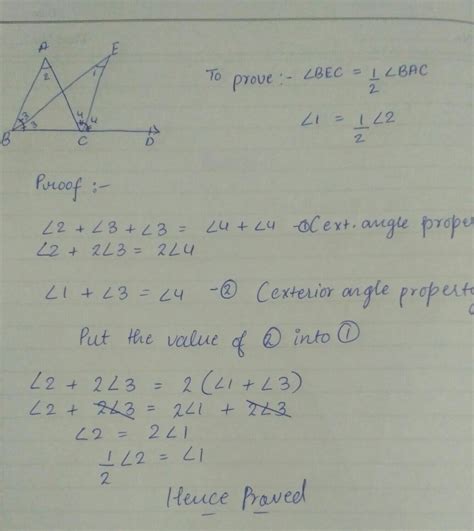 A E
2 1
3 3 4 4
B C D
To prove :- ∠BEC = 1/2 ∠BAC
∠1 = 1/2 ∠2
Proof :-
∠2 + ∠3 + ∠3 = ∠4 + ∠4 -① (ext. angle proper
∠2 + 2∠3 = 2∠4
∠1 + ∠3 = ∠4 -② (exterior angle property
Put the value of ② into ①
∠2 + 2∠3 = 2(∠1 + ∠3)
∠2 + 2∠3 = 2∠1 + 2∠3
∠2 = 2∠1
1/2 ∠2 = ∠1
Hence Proved